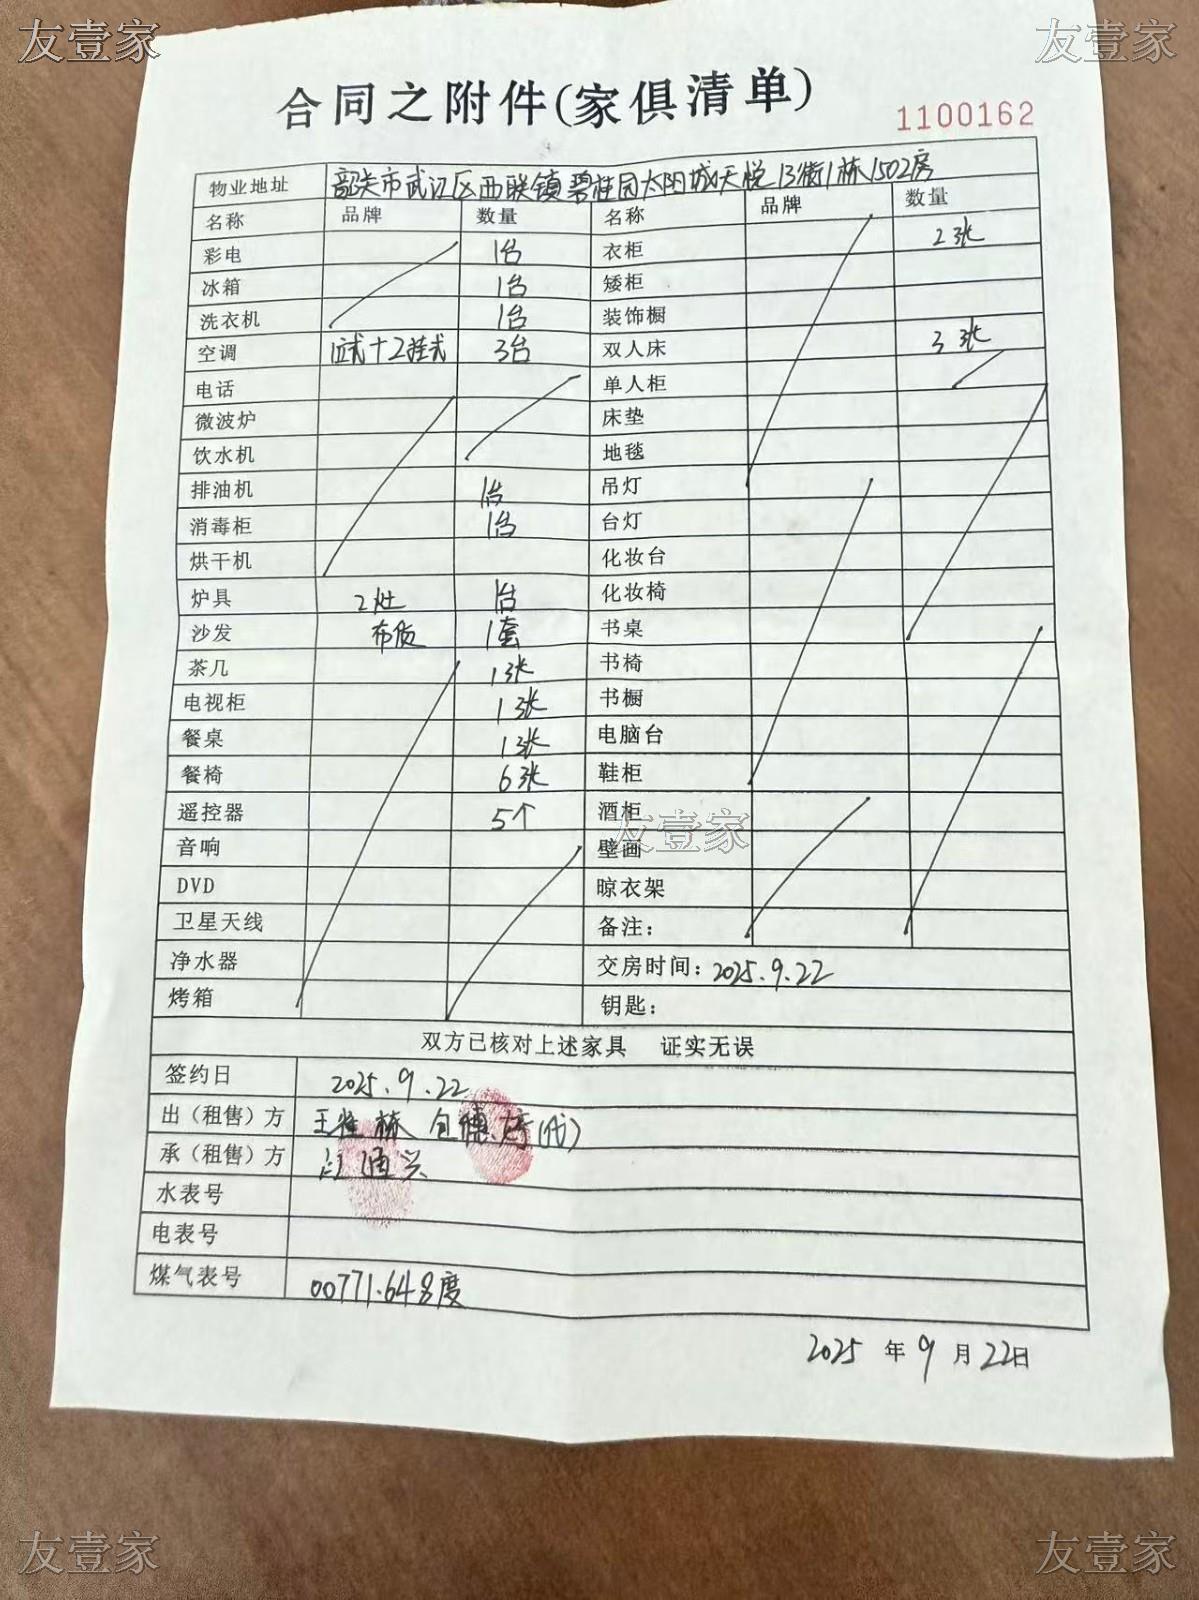 友壹家 友壹家
合同之附件(家俱清单)
1100162
物业地址 韶关市武江区西联镇碧桂园太阳城天悦13街1栋1502房
名称 品牌 数量 名称 品牌 数量
彩电 1台 衣柜 2张
冰箱 1台 矮柜
洗衣机 1台 装饰橱
空调 1立式+2挂式 3台 双人床 3张
电话 单人柜
微波炉 床垫
饮水机 地毯
排油机 1台 吊灯
消毒柜 1台 台灯
烘干机 化妆台
炉具 2灶 1台 化妆椅
沙发 布质 1套 书桌
茶几 1张 书椅
电视柜 1张 书橱
餐桌 1张 电脑台
餐椅 6张 鞋柜
遥控器 5个 酒柜
友壹家
音响 壁画
DVD 晾衣架
卫星天线 备注：
净水器 交房时间：2025.9.22
烤箱 钥匙：
双方已核对上述家具 证实无误
签约日 2025.9.22
出（租售）方 (代)
承（租售）方
水表号
电表号
煤气表号 00771.648度
2025 年 9 月 22日
友壹家 友壹家